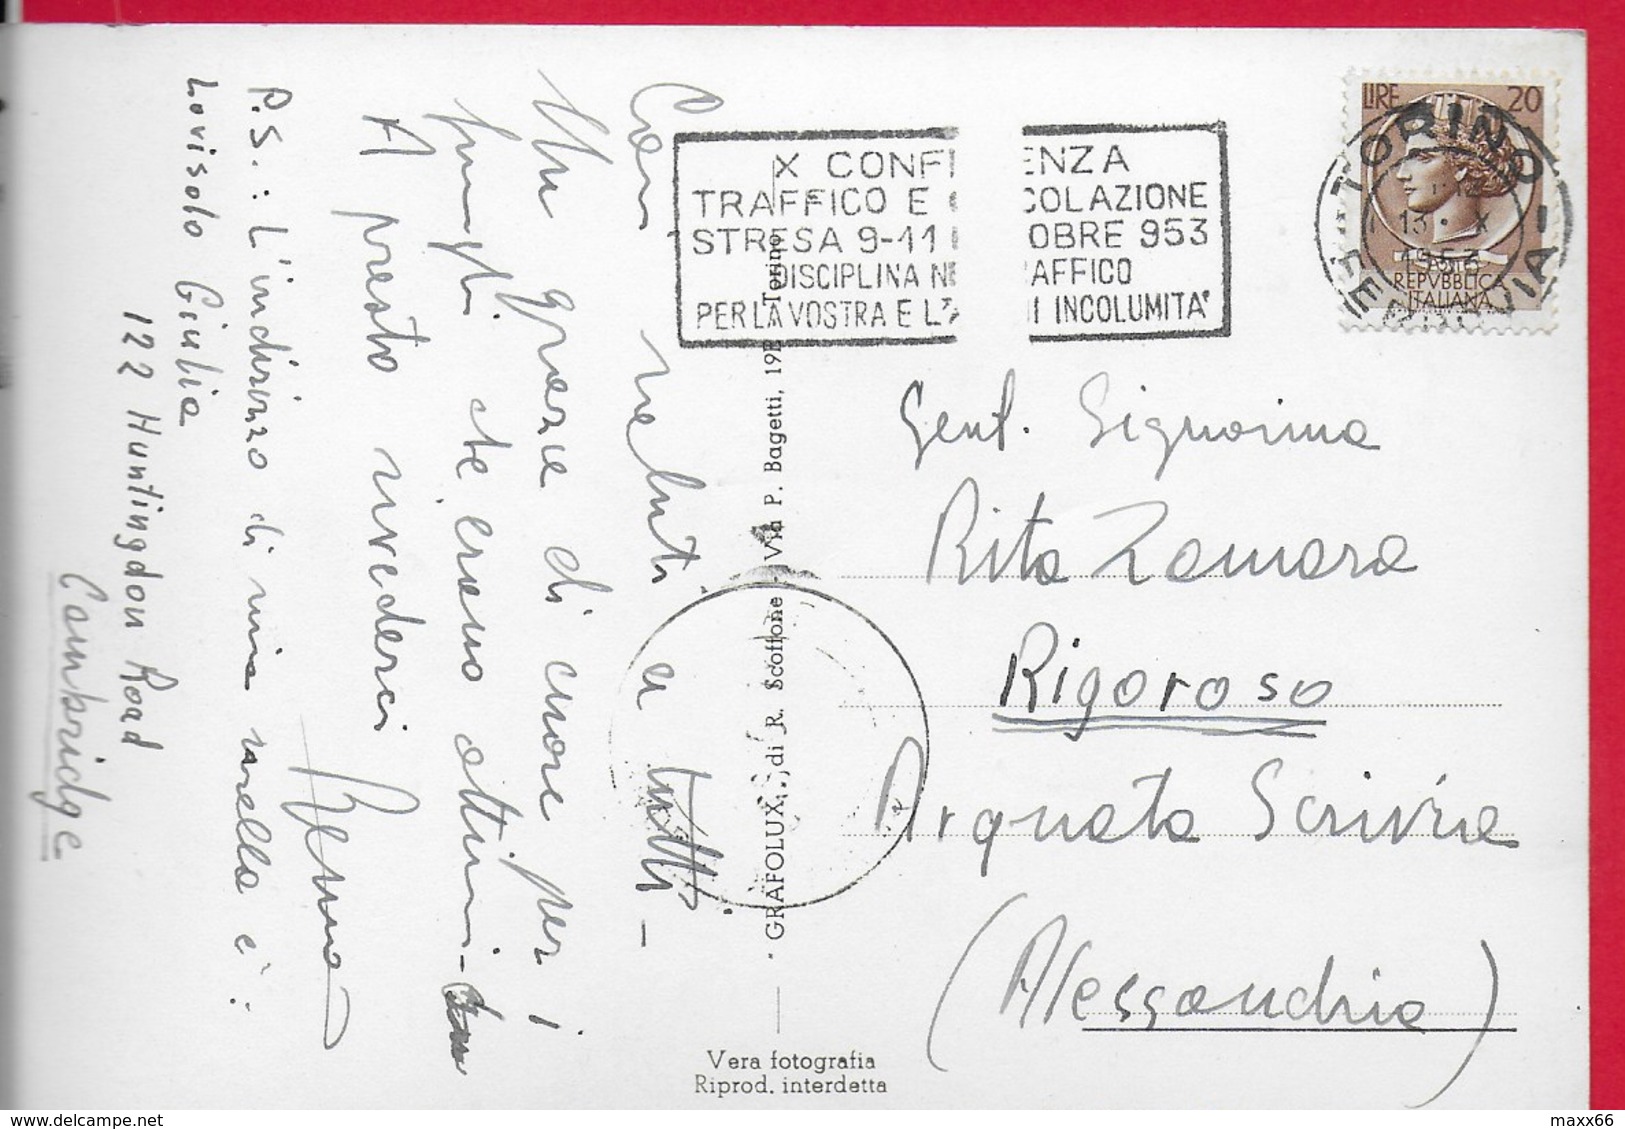 Cari saluti a tutti -
Un grazie di cuore per i
funghi che erano ottimi -
A presto rivederci
P.S.: L'indirizzo di mia sorella è:
Lovisolo Giulia
122 Huntingdon Road
Cambridge
X CONF ENZA
TRAFFICO E COLAZIONE
STRESA 9-11 OBRE 953
DISCIPLINA NE AFFICO
PER LA VOSTRA E L'A I INCOLUMITA'
LIRE 20
REPVBBLICA
ITALIANA
TORINO
FERROVIA
13 · X
1953
Gent. Signorina
Rita Zamara
Rigoroso
Arquata Scrivia
(Alessandria)
· GRAFOLUX, di R. Scoffone - Via P. Bagetti, 19E Torino
Vera fotografia
Riprod. interdetta
delcampe.net
maxx66